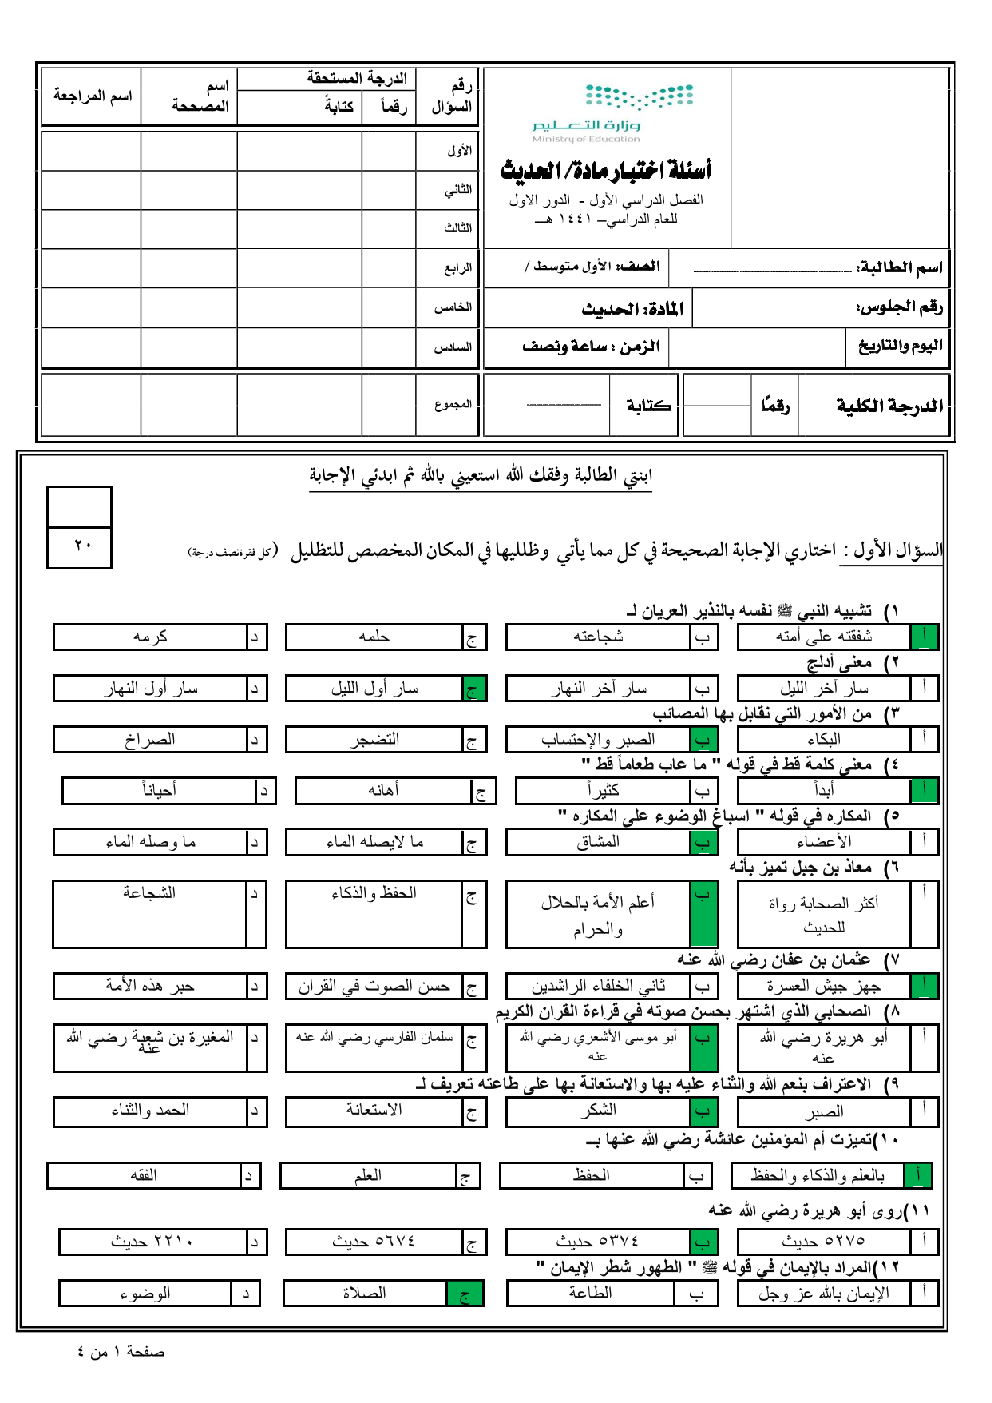 وزارة التعليم
Ministry of Education
أسئلة اختبار مادة/ الحديث
الفصل الدراسي الأول - الدور الاول
للعام الدراسي– ١٤٤١ هــ
اسم الطالبة: ـــــــــــــــــــــــــــــــ
الصف: الأول متوسط /
رقم الجلوس:
المادة: الحديث
اليوم والتاريخ
الزمن : ساعة ونصف
الدرجة الكلية
رقمًا
كتابة
رقم السؤال
الدرجة المستحقة
رقماً
كتابةً
اسم المصححة
اسم المراجعة
الأول
الثاني
الثالث
الرابع
الخامس
السادس
المجموع
ابنتي الطالبة وفقك الله استعيني بالله ثم ابدئي الإجابة
٢٠
السؤال الأول : اختاري الإجابة الصحيحة في كل مما يأتي وظلليها في المكان المخصص للتظليل (كل فقرة نصف درجة)
١) تشبيه النبي ﷺ نفسه بالنذير العريان لـ
أ شفقته على أمته ب شجاعته ج حلمه د كرمه
٢) معنى أدلج
أ سار آخر الليل ب سار آخر النهار ج سار أول الليل د سار أول النهار
٣) من الأمور التي نقابل بها المصائب
أ البكاء ب الصبر والإحتساب ج التضجر د الصراخ
٤) معنى كلمة قط في قوله " ما عاب طعاماً قط "
أ أبداً ب كثيراً ج أهانه د أحياناً
٥) المكاره في قوله " اسباغ الوضوء على المكاره "
أ الأعضاء ب المشاق ج ما لايصله الماء د ما وصله الماء
٦) معاذ بن جبل تميز بأنه
أ أكثر الصحابة رواة للحديث ب أعلم الأمة بالحلال والحرام ج الحفظ والذكاء د الشجاعة
٧) عثمان بن عفان رضي الله عنه
أ جهز جيش العسرة ب ثاني الخلفاء الراشدين ج حسن الصوت في القران د حبر هذه الأمة
٨) الصحابي الذي اشتهر بحسن صوته في قراءة القران الكريم
أ أبو هريرة رضي الله عنه ب أبو موسى الأشعري رضي الله عنه ج سلمان الفارسي رضي الله عنه د المغيرة بن شعبة رضي الله عنه
٩) الاعتراف بنعم الله والثناء عليه بها والاستعانة بها على طاعته تعريف لـ
أ الصبر ب الشكر ج الاستعانة د الحمد والثناء
١٠)تميزت أم المؤمنين عائشة رضي الله عنها بــ
أ بالعلم والذكاء والحفظ ب الحفظ ج العلم د الفقه
١١)روى أبو هريرة رضي الله عنه
أ ٥٢٧٥ حديث ب ٥٣٧٤ حديث ج ٥٦٧٤ حديث د ٢٢١٠ حديث
١٢)المراد بالإيمان في قوله ﷺ " الطهور شطر الإيمان "
أ الإيمان بالله عز وجل ب الطاعة ج الصلاة د الوضوء
صفحة ١ من ٤